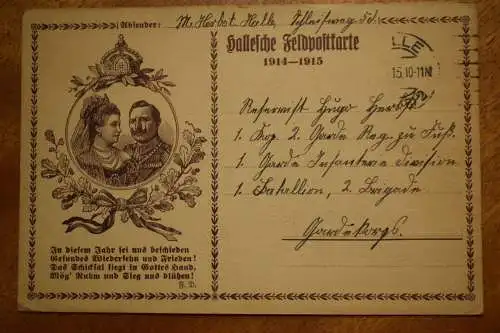 Absender: M. Herbst Halle,
Hallesche Feldpostkarte
1914–1915
LLE
15.10-11N
Reservist Hugo Herbst
1. Kop. 2 Garde Reg. zu Fuß.
1. Garde Infanterie division
1. Batallion, 2. Brigade
Gardekorps.
In diesem Jahr sei uns beschieden
Gesundes Wiedersehn und Frieden!
Das Schicksal liegt in Gottes Hand,
Mög' Ruhm und Sieg uns blühen!
F. D.